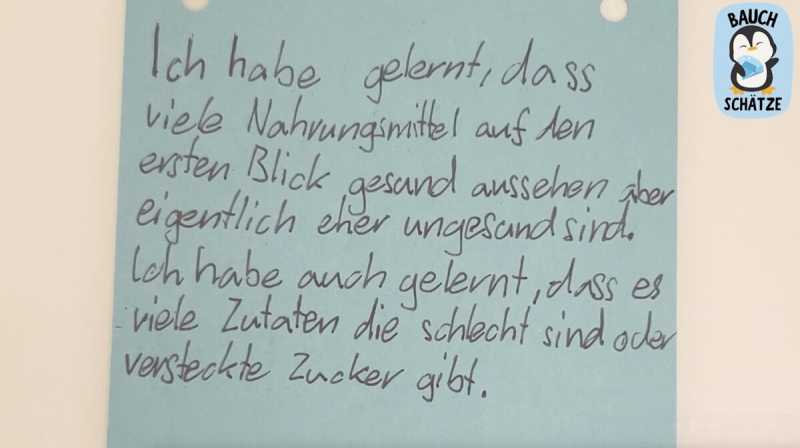 Ich habe gelernt, dass
viele Nahrungsmittel auf den
ersten Blick gesund aussehen aber
eigentlich eher ungesund sind.
Ich habe auch gelernt, dass es
viele Zutaten die schlecht sind oder
versteckte Zucker gibt.
BAUCH
SCHÄTZE